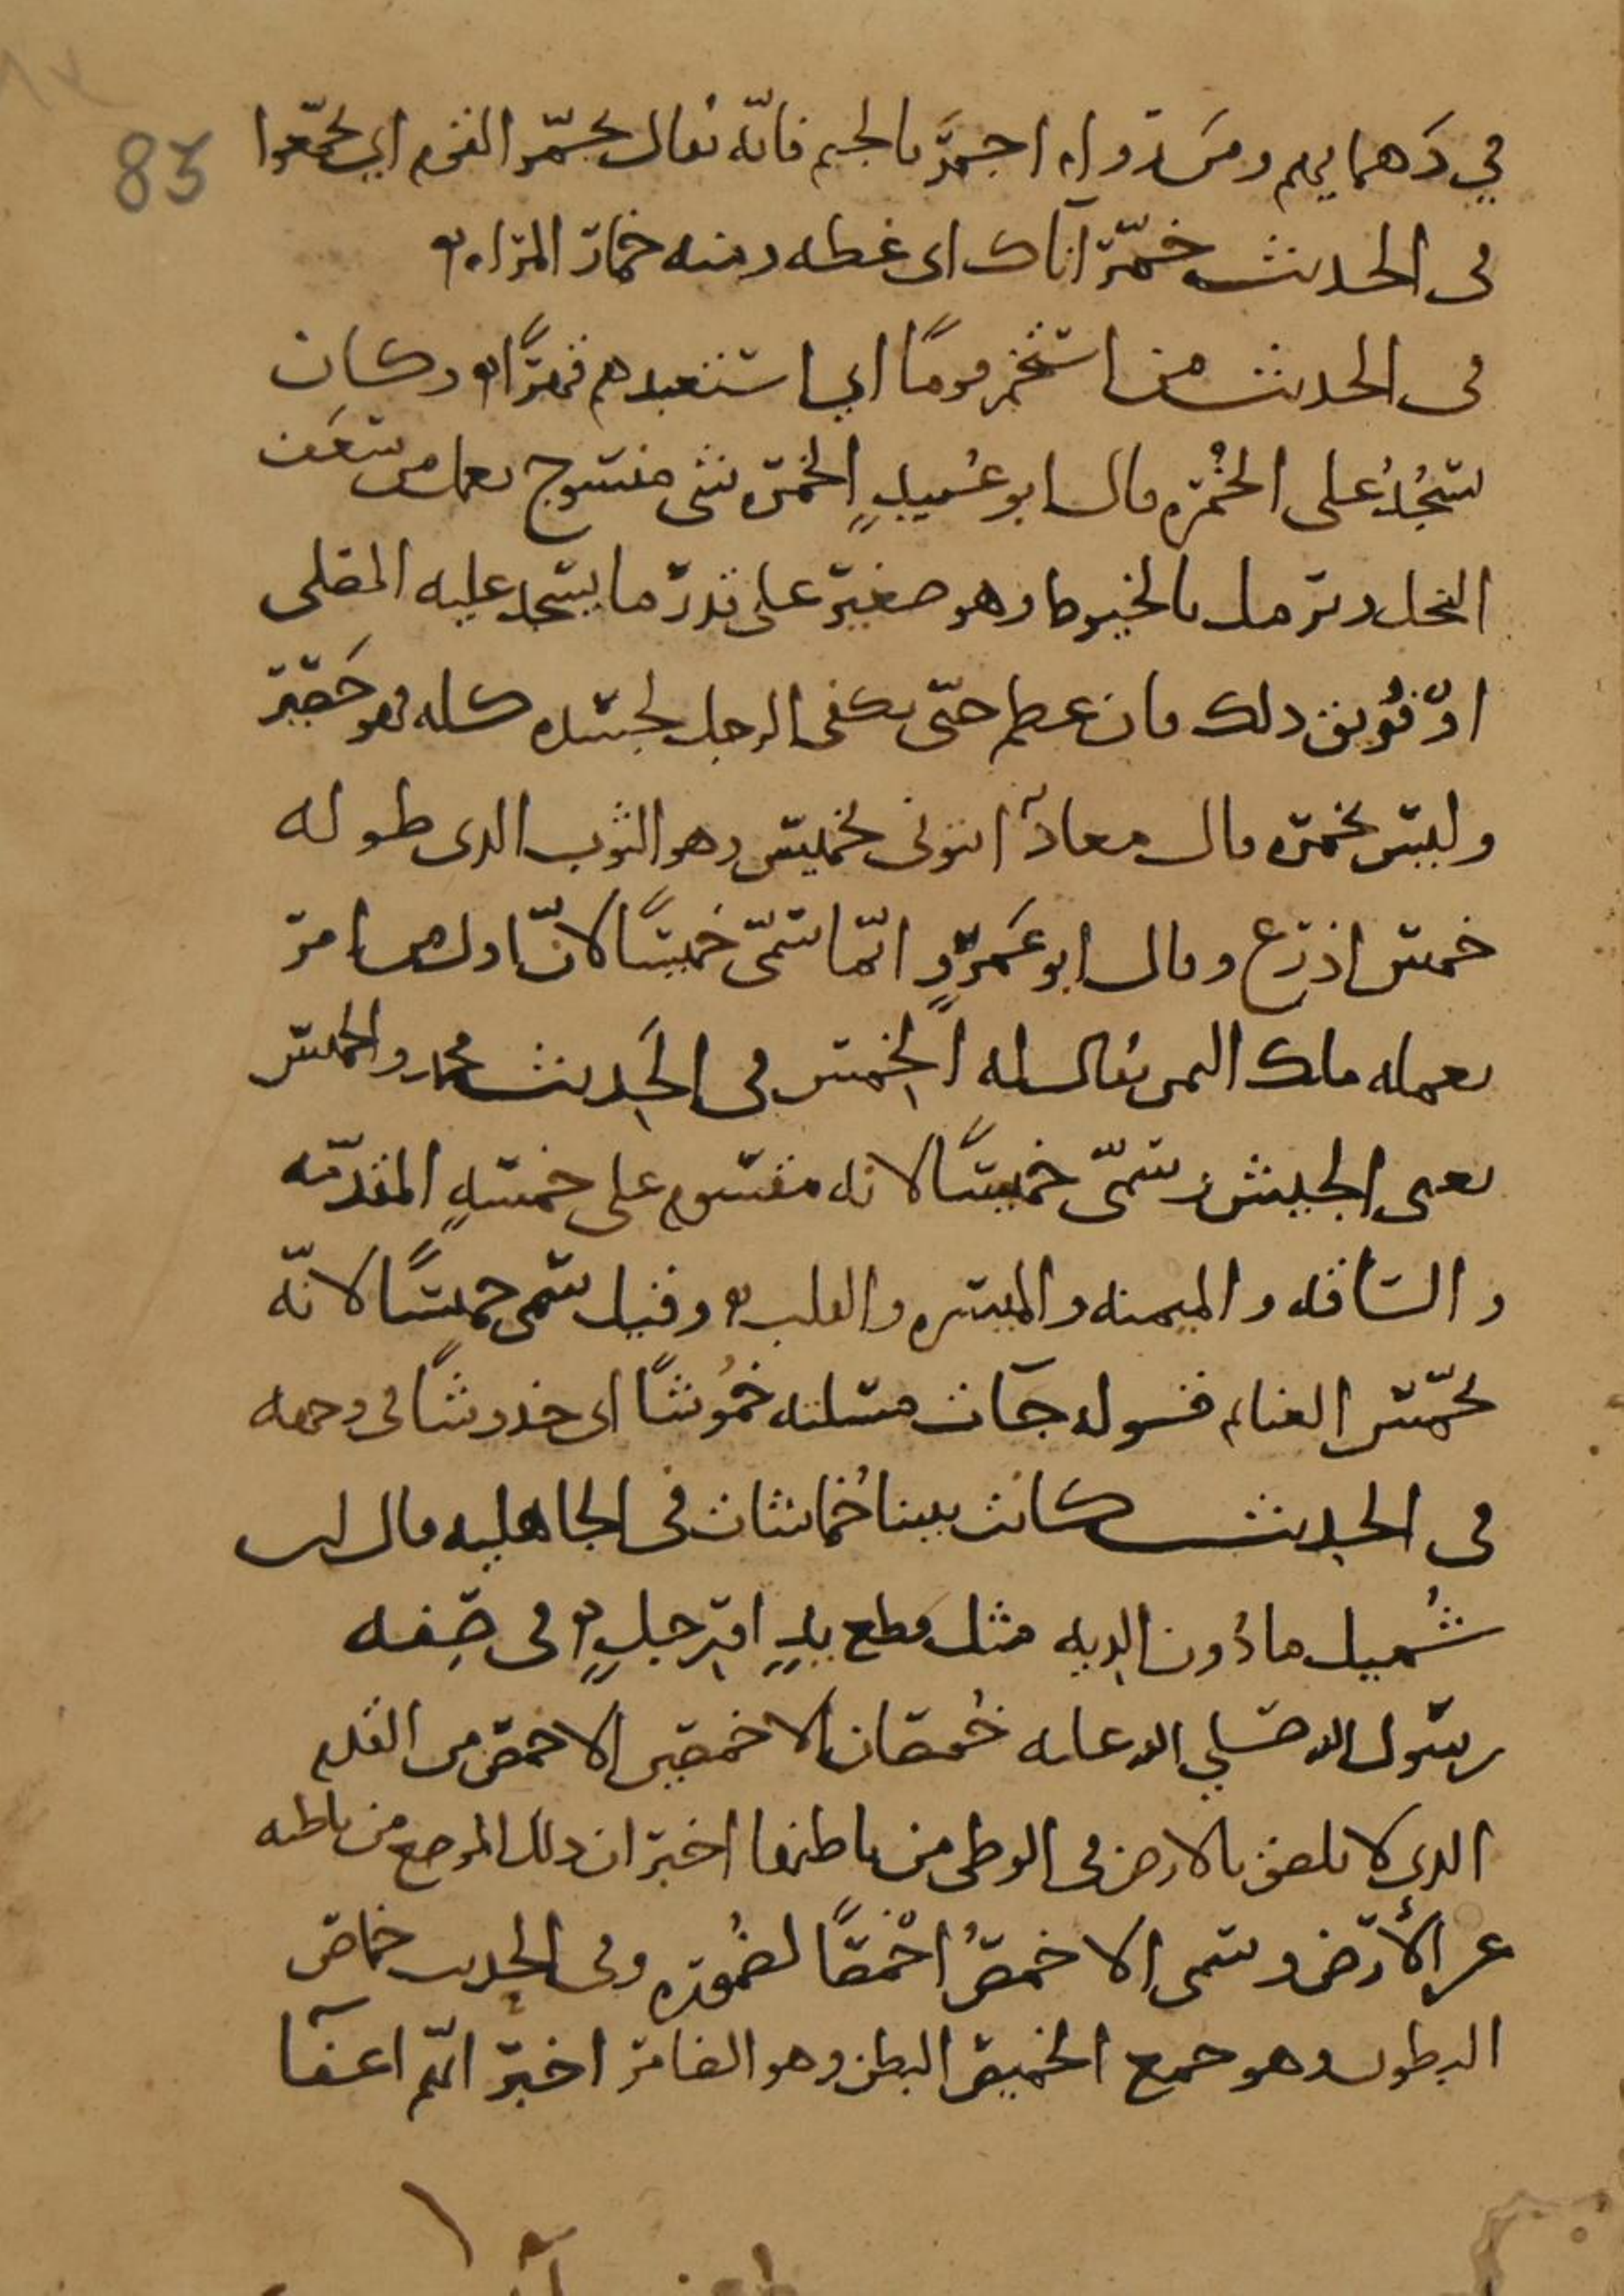 83
في دَهمايهم ومَن رواه اجمَرَ بالجيم فانّه يقال تجمّر القوم اي تجمّعوا
في الحديث خمّر آناك اى غطه ومنه خمار المراه
في الحديث من استخمر قومًا اي استعبدهم قهرًا وكان
يسجُدُ على الخُمْره قال ابو عُبيدٍ الخمره شى منسوج يعمل من سَعَف
النخل ويرمل بالخيوط وهو صغير على قدر ما يسجد عليه المصلى
او فُويق ذلك فان عظم حتّى يكفى الرجل لجسده كله فهو حَصير
وليس بخمره قال معاذ ائتونى بخميس وهو الثوب الذى طوله
خمس اذرع وقال ابو عَمروٍ انّما سُمّى خميسًا لانّ اول من امر
بعمله ملك اليمن يقال له الخِمس في الحَديث محمد والخميس
يعنى الجيش وسُمّى خميسًا لانه مقسوم على خمسهٍ المقدّمه
والسّاقه والميمنه والميسره والقلب وقيل سُمى خميسًا لانّه
تخمّس الغنايم قوله جآت مسلته خُمُوشًا اى خدوشًا في وجهه
في الحديث كانت بيننا خُماشات في الجاهليه قال ابن
شُميل ما دُون الديه مثل قطع يدٍ او رجلٍ في صِفه
رسول الله صلى الله عليه خُمصان الاخمصين الاخمص من القدم
الذى لا يلصق بالارض في الوطى من باطنها اخبر ان ذلك الموضع من باطنه
عن الأرض وسمى الاخمصُ اخْمصًا لضُموره وفى الحديث خماص
البطون وهو جمع الخميص البطن وهو الضامر اخبر انّهم اعفّآ